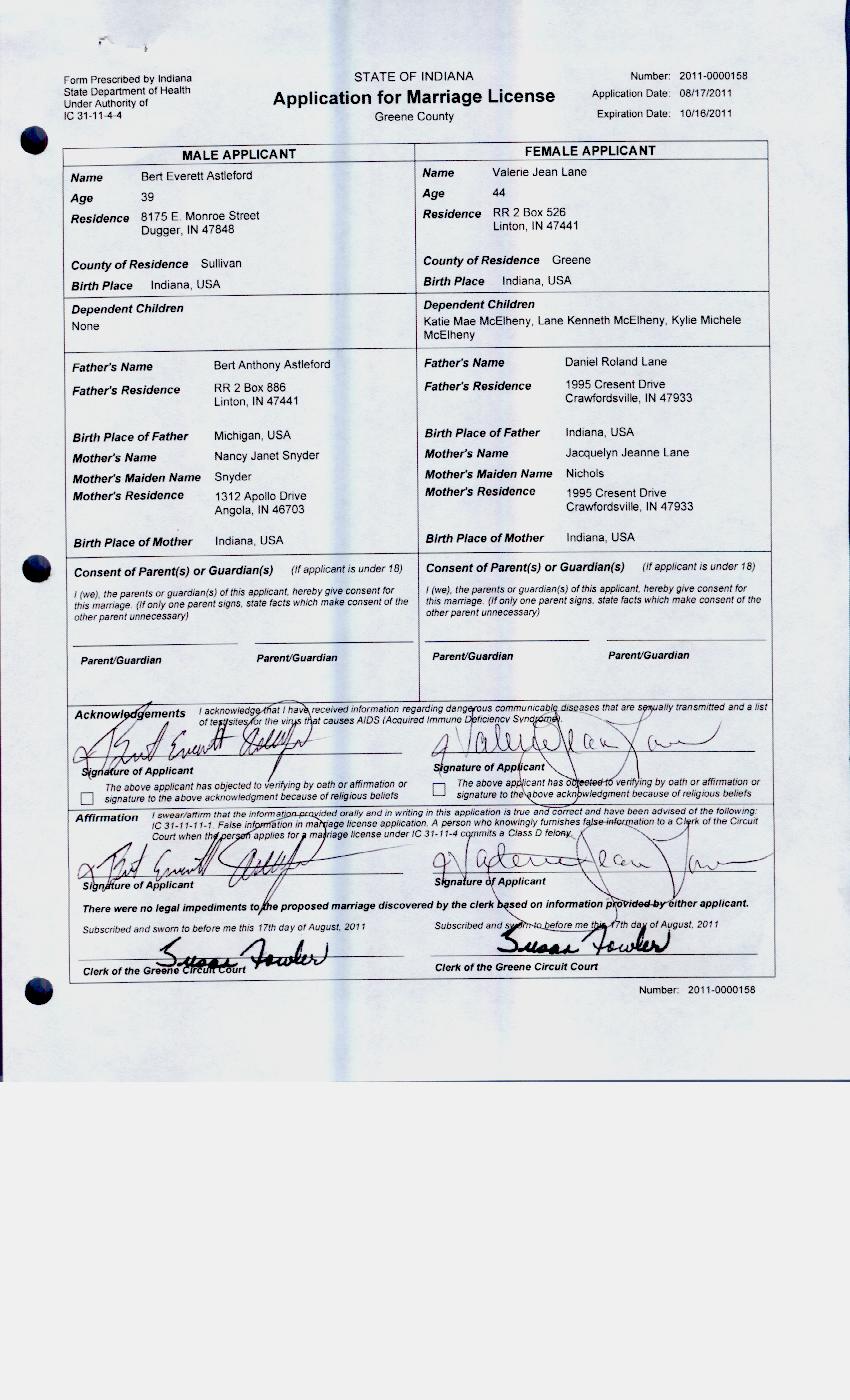 Form Prescribed by Indiana
State Department of Health
Under Authority of
IC 31-11-4-4
STATE OF INDIANA
Application for Marriage License
Greene County
Number: 2011-0000158
Application Date: 08/17/2011
Expiration Date: 10/16/2011
MALE APPLICANT
Name Bert Everett Astleford
Age 39
Residence 8175 E. Monroe Street
Dugger, IN 47848
County of Residence Sullivan
Birth Place Indiana, USA
Dependent Children
None
Father's Name Bert Anthony Astleford
Father's Residence RR 2 Box 886
Linton, IN 47441
Birth Place of Father Michigan, USA
Mother's Name Nancy Janet Snyder
Mother's Maiden Name Snyder
Mother's Residence 1312 Apollo Drive
Angola, IN 46703
Birth Place of Mother Indiana, USA
Consent of Parent(s) or Guardian(s) (If applicant is under 18)
I (we), the parents or guardian(s) of this applicant, hereby give consent for
this marriage. (If only one parent signs, state facts which make consent of the
other parent unnecessary)
Parent/Guardian Parent/Guardian
FEMALE APPLICANT
Name Valerie Jean Lane
Age 44
Residence RR 2 Box 526
Linton, IN 47441
County of Residence Greene
Birth Place Indiana, USA
Dependent Children
Katie Mae McElheny, Lane Kenneth McElheny, Kylie Michele
McElheny
Father's Name Daniel Roland Lane
Father's Residence 1995 Cresent Drive
Crawfordsville, IN 47933
Birth Place of Father Indiana, USA
Mother's Name Jacquelyn Jeanne Lane
Mother's Maiden Name Nichols
Mother's Residence 1995 Cresent Drive
Crawfordsville, IN 47933
Birth Place of Mother Indiana, USA
Consent of Parent(s) or Guardian(s) (If applicant is under 18)
I (we), the parents or guardian(s) of this applicant, hereby give consent for
this marriage. (If only one parent signs, state facts which make consent of the
other parent unnecessary)
Parent/Guardian Parent/Guardian
Acknowledgements I acknowledge that I have received information regarding dangerous communicable diseases that are sexually transmitted and a list
of test sites for the virus that causes AIDS (Acquired Immune Deficiency Syndrome).
x Bert Everett Astleford
Signature of Applicant
The above applicant has objected to verifying by oath or affirmation or
signature to the above acknowledgment because of religious beliefs
x Valerie Jean Lane
Signature of Applicant
The above applicant has objected to verifying by oath or affirmation or
signature to the above acknowledgment because of religious beliefs
Affirmation I swear/affirm that the information provided orally and in writing in this application is true and correct and have been advised of the following:
IC 31-11-11-1. False information in marriage license application. A person who knowingly furnishes false information to a Clerk of the Circuit
Court when the person applies for a marriage license under IC 31-11-4 commits a Class D felony.
x Bert Everett Astleford
Signature of Applicant
x Valerie Jean Lane
Signature of Applicant
There were no legal impediments to the proposed marriage discovered by the clerk based on information provided by either applicant.
Subscribed and sworn to before me this 17th day of August, 2011
Susan Fowler
Clerk of the Greene Circuit Court
Subscribed and sworn to before me this 17th day of August, 2011
Susan Fowler
Clerk of the Greene Circuit Court
Number: 2011-0000158